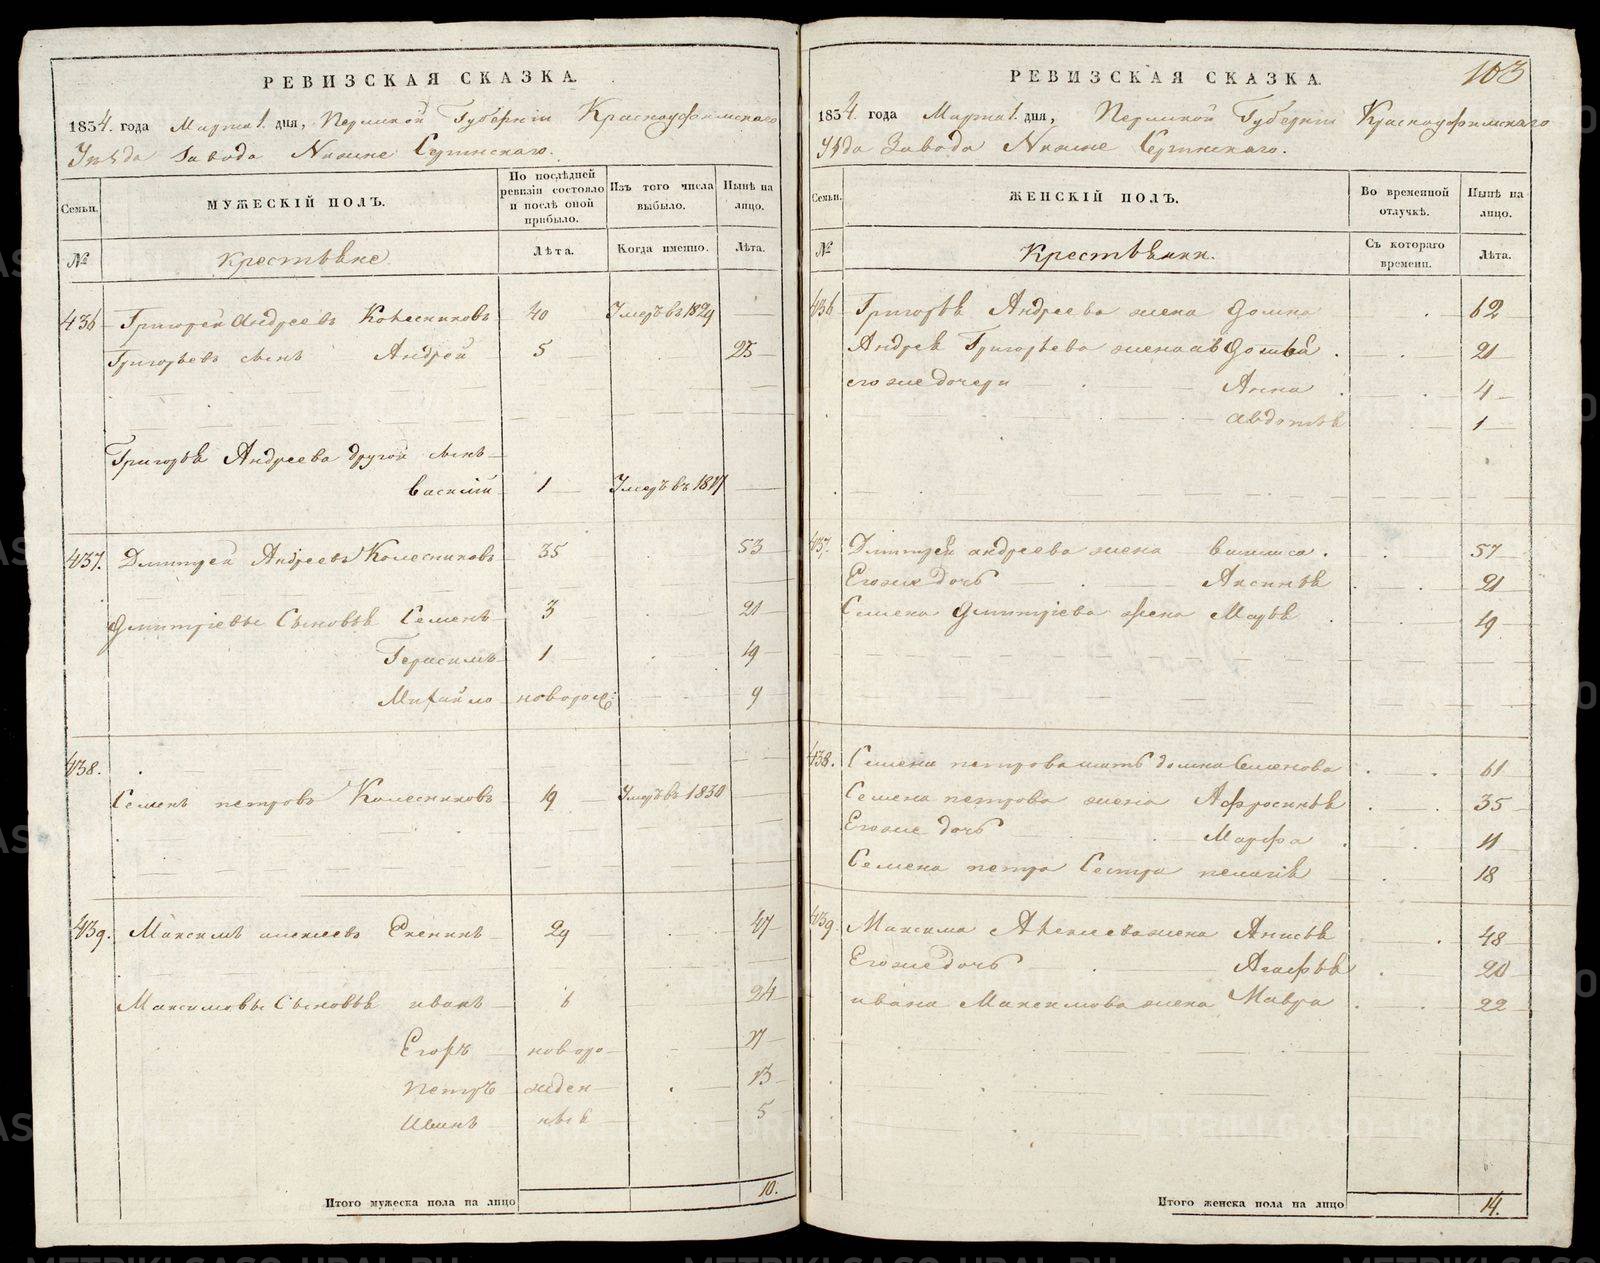 РЕВИЗСКАЯ СКАЗКА.
1834 года Марта 1. дня, Пермской Губернiи Красноуфимскаго
Уѣзда Завода Нижне Сергинскаго.
Семьи.
МУЖЕСКIЙ ПОЛЪ.
По послѣдней ревизiи состояло и послѣ оной прибыло.
Изъ того числа выбыло.
Нынѣ на лицо.
№
Крестьяне
Лѣта.
Когда именно.
Лѣта.
436 Григорей Андреевъ Колесниковъ 40 Умеръ въ 1829
Григорьевъ сынъ Андрей 5 25
Григорья Андреева другой сынъ
Василiй 1 Умеръ въ 1817
437. Дмитрей Андреевъ Колесниковъ 35 53
Дмитрiевы Сыновья Семенъ 3 21
Герасимъ 1 19
Михайло новорож: 9
438.
Семенъ петровъ Колесниковъ 19 Умеръ въ 1830
439. Максимъ алексеевъ 29 47
Максимовы Сыновья иванъ 6 24
Егоръ новоро 17
Петръ жден 13
ные 5
Итого мужеска пола на лицо 10.
РЕВИЗСКАЯ СКАЗКА.
103
1834 года Марта 1. дня, Пермской Губернiи Красноуфимскаго
Уѣзда Завода Нижне Сергинскаго.
Семьи.
ЖЕНСКIЙ ПОЛЪ.
Во временной отлучкѣ.
Нынѣ на лицо.
№
Крестьянки.
Съ котораго времени.
Лѣта.
436 Григорья Андреева жена Домна 62
Андрея Григорьева жена 21
его же дочери Анна 4
Авдотья 1
437. Дмитрея андреева жена Василиса. 57
Его же дочь Аксинья 21
Семена Дмитрiева жена Марья 19
438. Семена петрова мать домна Семенова 61
Семена петрова жена Афросинья 35
Его же дочь Марфа 11
Семена петра Сестра пелагiя 18
439. Максима Алексеева жена Анисья 48
Его же дочь Агафья 20
ивана Максимова жена Мавра 22
Итого женска пола на лицо 14.
METRIKI.GASO-URAL.RU